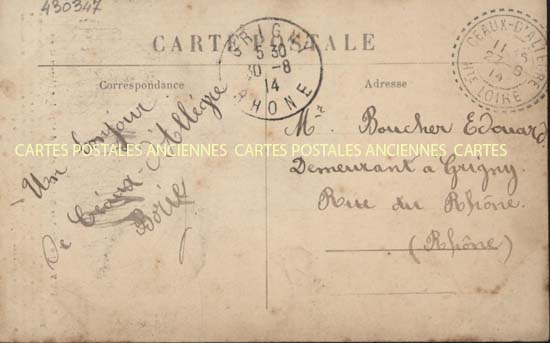 430347
CARTE POSTALE
GRIGNY
5 30
30 -8
14
RHONE
CEAUX-D'ALLEGRE
11
27 8
14
HTE LOIRE
Correspondance
Adresse
Un Bonjour
De Céaux-d'Allègre
Mr Boucher Edouard
Demeurant à Grigny
Rue du Rhône.
(Rhône)
CARTES POSTALES ANCIENNES CARTES POSTALES ANCIENNES CARTES